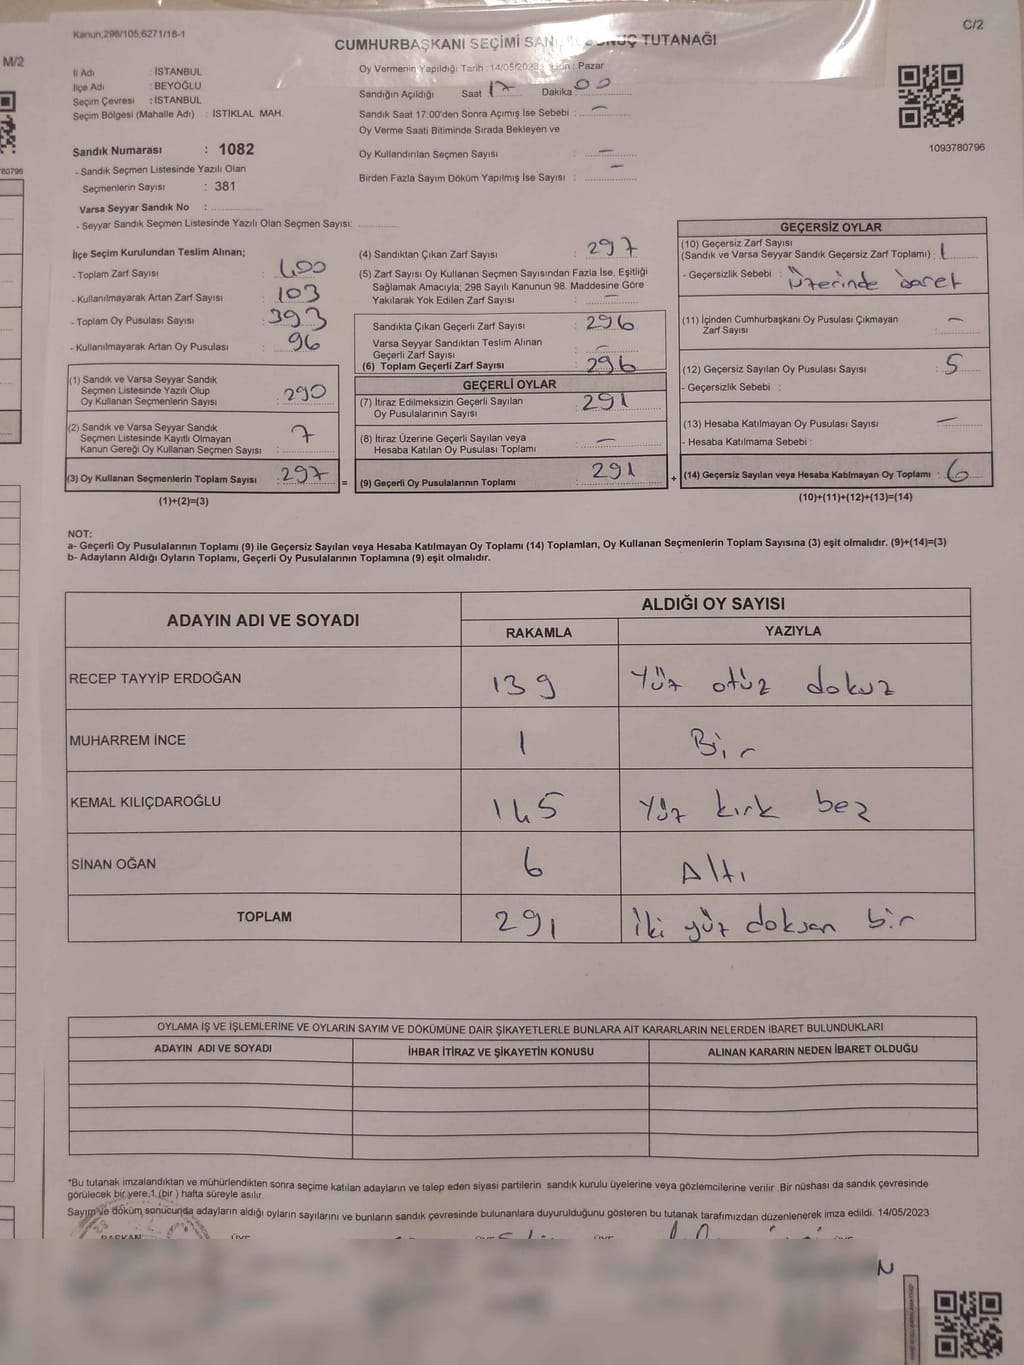 Kanun:298/105,6271/18-1
C/2
M/2
CUMHURBAŞKANI SEÇİMİ SANDIK SONUÇ TUTANAĞI
İl Adı : İSTANBUL
İlçe Adı : BEYOĞLU
Seçim Çevresi : İSTANBUL
Seçim Bölgesi (Mahalle Adı) : İSTİKLAL MAH.
Sandık Numarası : 1082
- Sandık Seçmen Listesinde Yazılı Olan
Seçmenlerin Sayısı : 381
Varsa Seyyar Sandık No :
- Seyyar Sandık Seçmen Listesinde Yazılı Olan Seçmen Sayısı:
Oy Vermenin Yapıldığı Tarih : 14/05/2023 Gün : Pazar
Sandığın Açıldığı Saat 17 Dakika 00
Sandık Saat 17:00'den Sonra Açımış İse Sebebi : —
Oy Verme Saati Bitiminde Sırada Bekleyen ve
Oy Kullandırılan Seçmen Sayısı : —
Birden Fazla Sayım Döküm Yapılmış İse Sayısı : —
1093780796
80796
İlçe Seçim Kurulundan Teslim Alınan;
- Toplam Zarf Sayısı : 400
- Kullanılmayarak Artan Zarf Sayısı : 103
- Toplam Oy Pusulası Sayısı : 393
- Kullanılmayarak Artan Oy Pusulası : 96
(1) Sandık ve Varsa Seyyar Sandık
Seçmen Listesinde Yazılı Olup
Oy Kullanan Seçmenlerin Sayısı : 290
(2) Sandık ve Varsa Seyyar Sandık
Seçmen Listesinde Kayıtlı Olmayan
Kanun Gereği Oy Kullanan Seçmen Sayısı : 7
(3) Oy Kullanan Seçmenlerin Toplam Sayısı : 297
(1)+(2)=(3)
=
(4) Sandıktan Çıkan Zarf Sayısı : 297
(5) Zarf Sayısı Oy Kullanan Seçmen Sayısından Fazla İse, Eşitliği
Sağlamak Amacıyla; 298 Sayılı Kanunun 98. Maddesine Göre
Yakılarak Yok Edilen Zarf Sayısı : —
Sandıkta Çıkan Geçerli Zarf Sayısı : 296
Varsa Seyyar Sandıktan Teslim Alınan
Geçerli Zarf Sayısı : —
(6) Toplam Geçerli Zarf Sayısı : 296
GEÇERLİ OYLAR
(7) İtiraz Edilmeksizin Geçerli Sayılan
Oy Pusulalarının Sayısı : 291
(8) İtiraz Üzerine Geçerli Sayılan veya
Hesaba Katılan Oy Pusulası Toplamı : —
(9) Geçerli Oy Pusulalarının Toplamı : 291
+
GEÇERSİZ OYLAR
(10) Geçersiz Zarf Sayısı
(Sandık ve Varsa Seyyar Sandık Geçersiz Zarf Toplamı) : 1
- Geçersizlik Sebebi : üzerinde işaret
(11) İçinden Cumhurbaşkanı Oy Pusulası Çıkmayan
Zarf Sayısı : —
(12) Geçersiz Sayılan Oy Pusulası Sayısı : 5
- Geçersizlik Sebebi :
(13) Hesaba Katılmayan Oy Pusulası Sayısı : —
- Hesaba Katılmama Sebebi :
(14) Geçersiz Sayılan veya Hesaba Katılmayan Oy Toplamı : 6
(10)+(11)+(12)+(13)=(14)
NOT:
a- Geçerli Oy Pusulalarının Toplamı (9) ile Geçersiz Sayılan veya Hesaba Katılmayan Oy Toplamı (14) Toplamları, Oy Kullanan Seçmenlerin Toplam Sayısına (3) eşit olmalıdır. (9)+(14)=(3)
b- Adayların Aldığı Oyların Toplamı, Geçerli Oy Pusulalarının Toplamına (9) eşit olmalıdır.
ADAYIN ADI VE SOYADI ALDIĞI OY SAYISI
RAKAMLA YAZIYLA
RECEP TAYYİP ERDOĞAN 139 Yüz otuz dokuz
MUHARREM İNCE 1 Bir
KEMAL KILIÇDAROĞLU 145 Yüz kırk beş
SİNAN OĞAN 6 Altı
TOPLAM 291 İki yüz doksan bir
OYLAMA İŞ VE İŞLEMLERİNE VE OYLARIN SAYIM VE DÖKÜMÜNE DAİR ŞİKAYETLERLE BUNLARA AİT KARARLARIN NELERDEN İBARET BULUNDUKLARI
ADAYIN ADI VE SOYADI İHBAR İTİRAZ VE ŞİKAYETİN KONUSU ALINAN KARARIN NEDEN İBARET OLDUĞU
*Bu tutanak imzalandıktan ve mühürlendikten sonra seçime katılan adayların ve talep eden siyasi partilerin sandık kurulu üyelerine veya gözlemcilerine verilir. Bir nüshası da sandık çevresinde
görülecek bir yere 1 (bir ) hafta süreyle asılır.
Sayım ve döküm sonucunda adayların aldığı oyların sayılarını ve bunların sandık çevresinde bulunanlara duyurulduğunu gösteren bu tutanak tarafımızdan düzenlenerek imza edildi. 14/05/2023
BAŞKAN